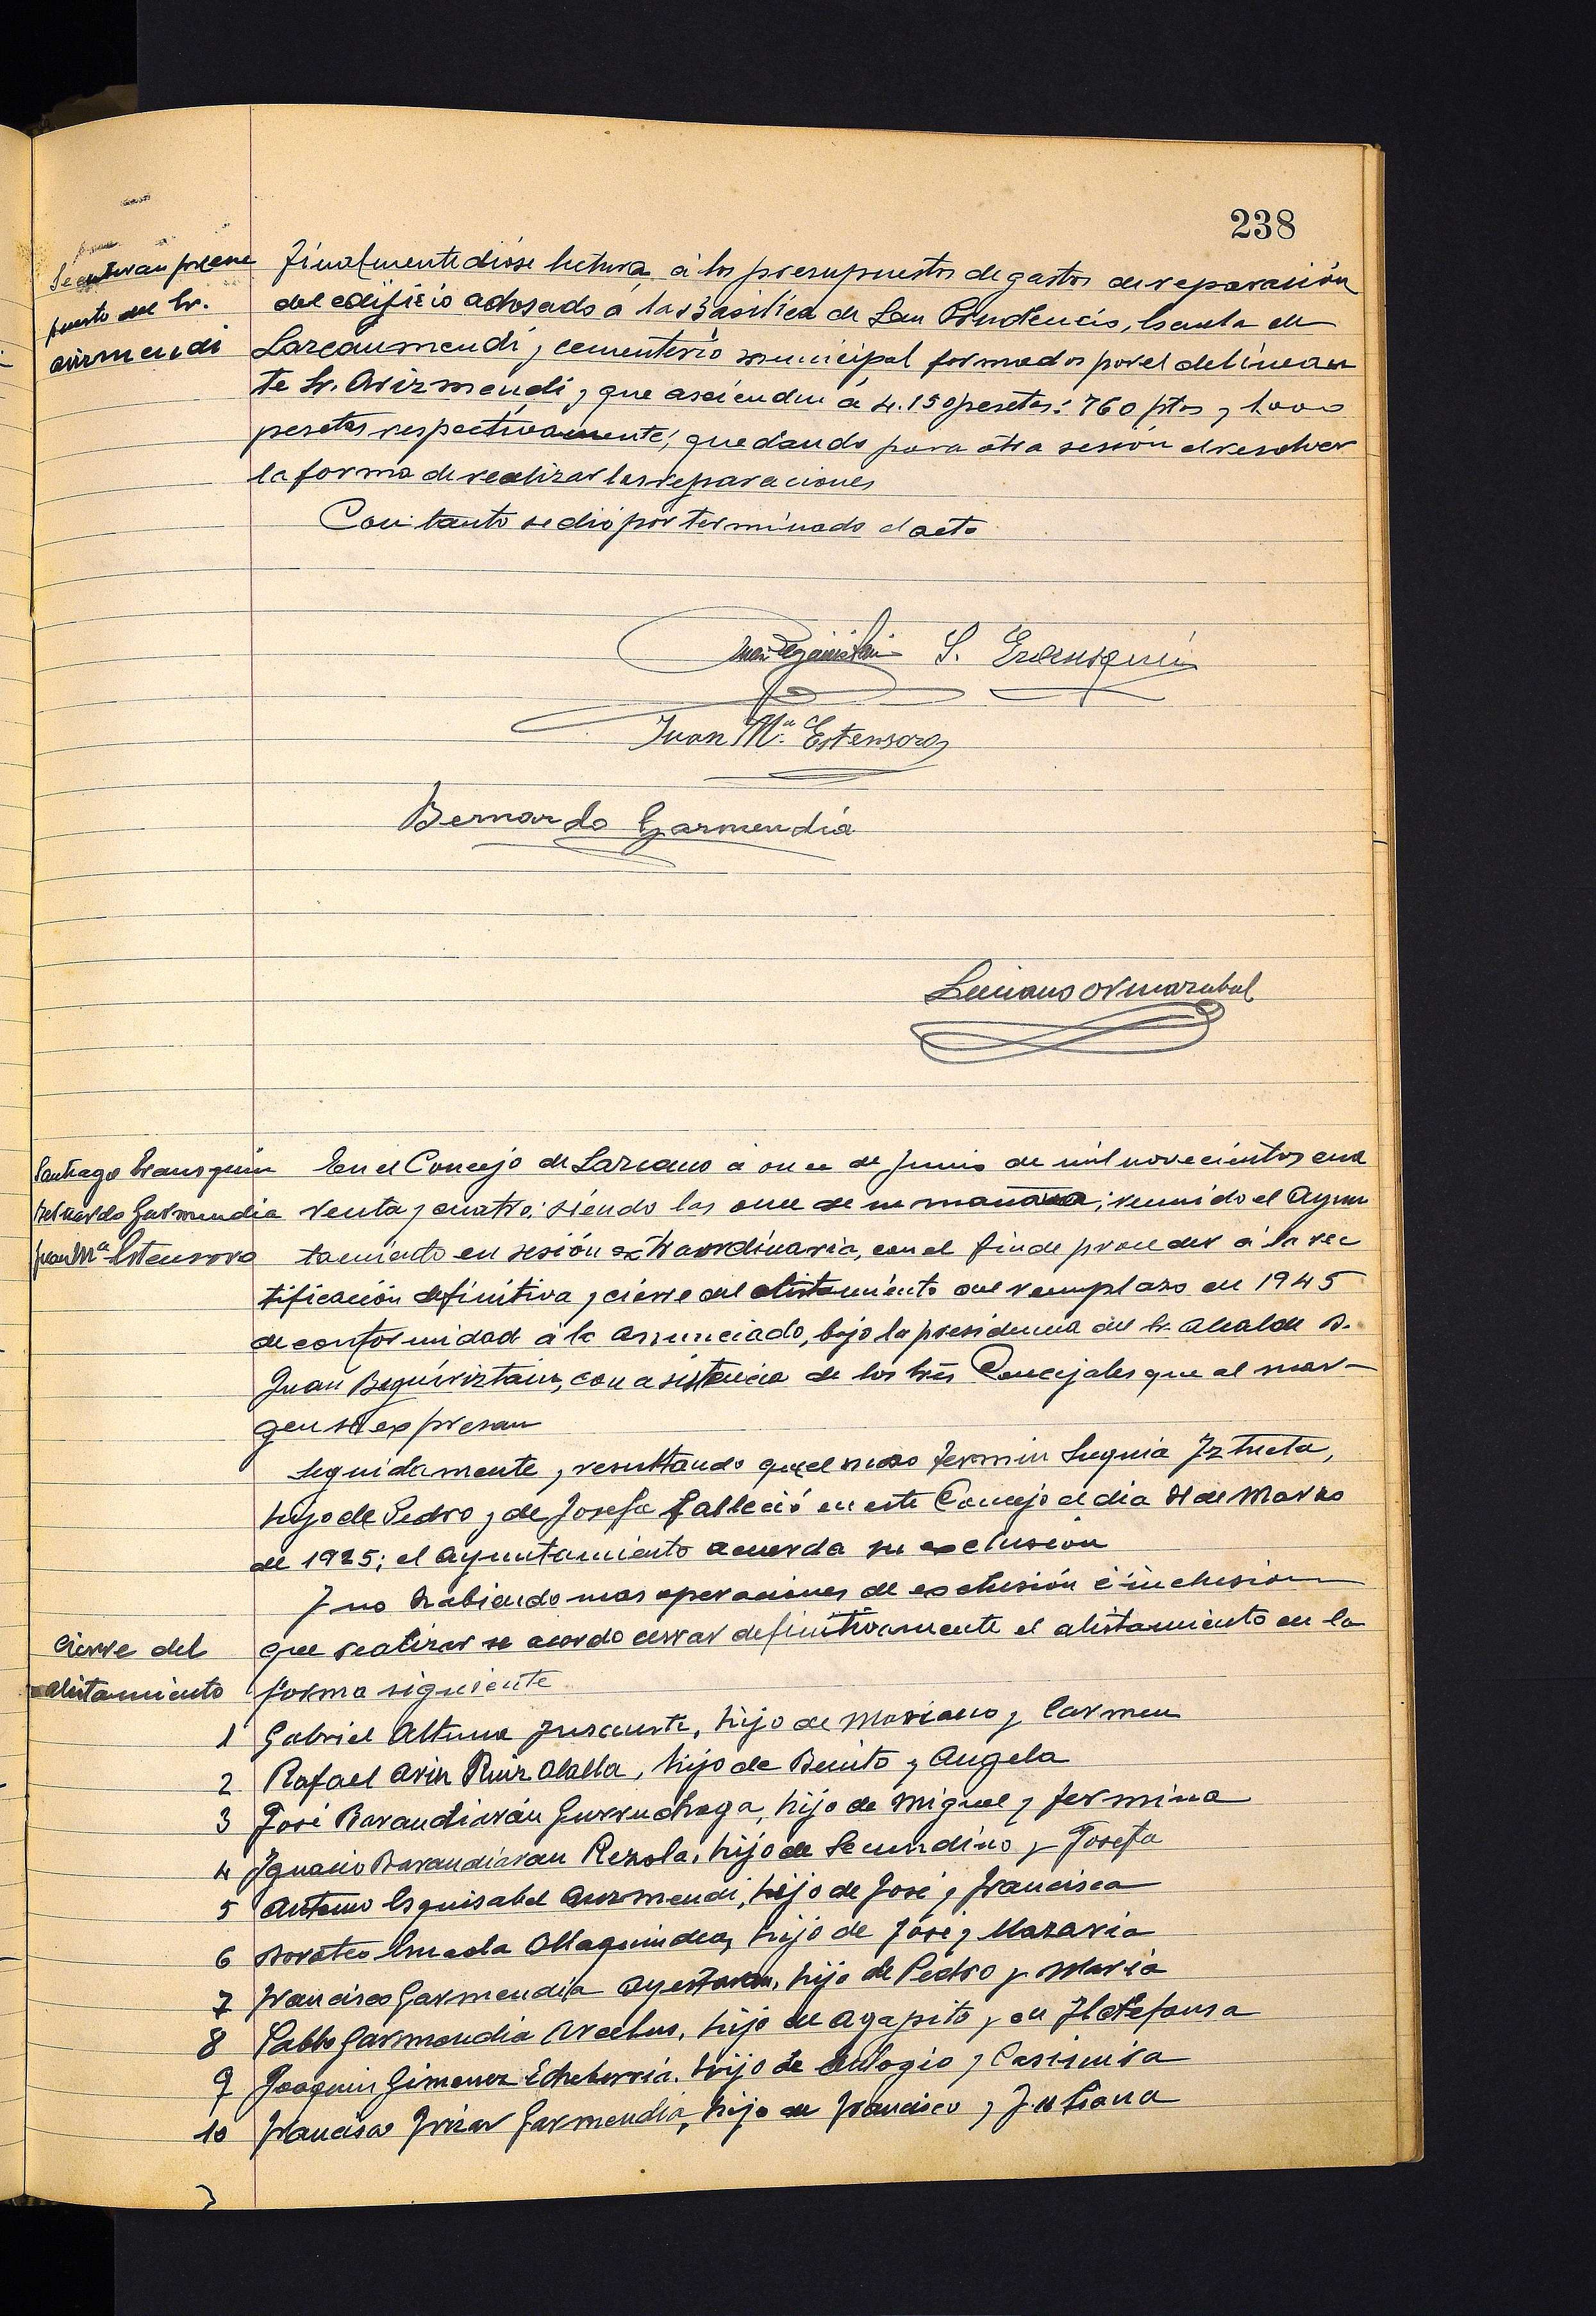 238
Se enteran presu
puesto del Sr.
Arizmendi
Finalmente dióse lectura á los presupuestos de gastos de reparación
del edificio adosado á la Basílica de San Prudencio, Escuela de
Lazcaumendi, y cementerio municipal formados por el delinean
te Sr. Arizmendi, y que ascienden á 4.150 pesetas: 760 ptas y 1.000
pesetas respectivamente; quedando para otra sesión el resolver
la forma de realizar las reparaciones
Con tanto se dió por terminado el acto
S. Eraunsquin
Juan Mª Estensoro
Bernardo Garmendia
Luciano Ormazabal
Santiago Erausquin
Bernardo Garmendia
Juan Mª Estensoro
En el Concejo de Lazcano á once de Junio de mil novecientos cua
renta y cuatro; siendo las once de su mañana; reunido el Ayun
tamiento en sesión extraordinaria, con el fin de proceder á la rec
tificación definitiva y cierre del alistamiento del remplazo de 1945
de conformidad á lo anunciado, bajo la presidencia del Sr. Alcalde D.
Juan Beguiriztain, con asistencia de los tres Concejales que al mar-
gen se expresan
Seguidamente, y resultando que el mozo Fermin Seguia Iztueta,
hijo de Pedro y de Josefa falleció en este Concejo el dia de Marzo
de 1925; el Ayuntamiento acuerda su exclusión
Y no habiendo mas operaciones de exclusión é inclusion
Cierre del
alistamiento
que realizar se acordo cerrar definitivamente el alistamiento en la
forma siguiente
1 Gabriel Altuna Insausti, hijo de Mariano y Carmen
2 Rafael Ariz Ruiz Olalla, hijo de Benito y Angela
3 José Barandiarán Gurruchaga, hijo de Miguel y Fermina
4 Ignacio Barandiaran Rezola, hijo de Secundino y Josefa
5 Antonio Esquisabel Aurmendi, hijo de José y Francisca
6 Doroteo Ollaquindia, hijo de José y Nazaria
7 Francisco Garmendia Ayestaran, hijo de Pedro y Maria
8 Pablo Garmendia Arcelus, hijo de Agapito y de Ildefonsa
9 Joaquin Gimenez Echeberria, hijo de Eulogio y Casimira
10 Francisco Irizar Garmendia, hijo de Francisco y Juliana